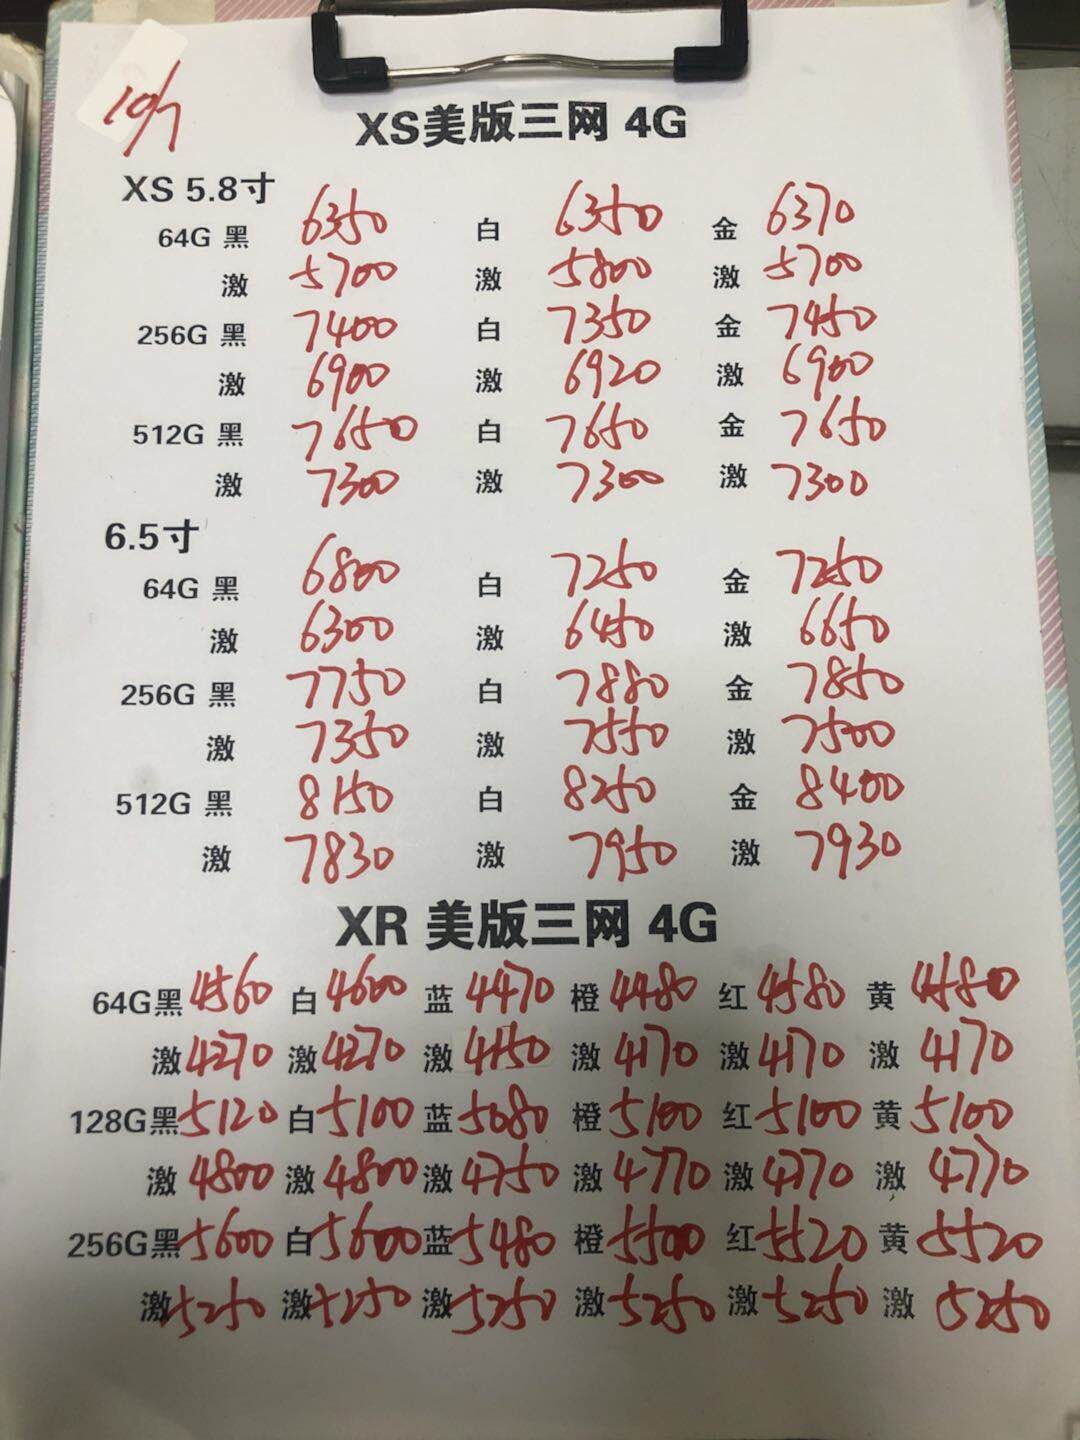 10/7
XS美版三网 4G
XS 5.8寸
64G 黑 6350 白 6350 金 6370
激 5700 激 5800 激 5700
256G 黑 7400 白 7350 金 7450
激 6900 激 6920 激 6900
512G 黑 7650 白 7650 金 7650
激 7300 激 7300 激 7300
6.5寸
64G 黑 6800 白 7250 金 7250
激 6300 激 6450 激 6650
256G 黑 7750 白 7880 金 7850
激 7350 激 7550 激 7500
512G 黑 8150 白 8250 金 8400
激 7830 激 7950 激 7930
XR 美版三网 4G
64G黑 4560 白 4600 蓝 4470 橙 4480 红 4580 黄 4580
激 4270 激 4270 激 4150 激 4170 激 4170 激 4170
128G黑 5120 白 5100 蓝 5080 橙 5100 红 5100 黄 5100
激 4800 激 4800 激 4750 激 4770 激 4770 激 4770
256G黑 5600 白 5600 蓝 5480 橙 5500 红 5520 黄 5520
激 5250 激 5250 激 5250 激 5250 激 5250 激 5250